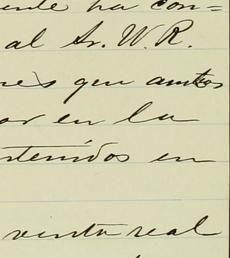 ente ha con=
al Sr. W. R.
nes que ambos
or en la
ntenidos en
venta real